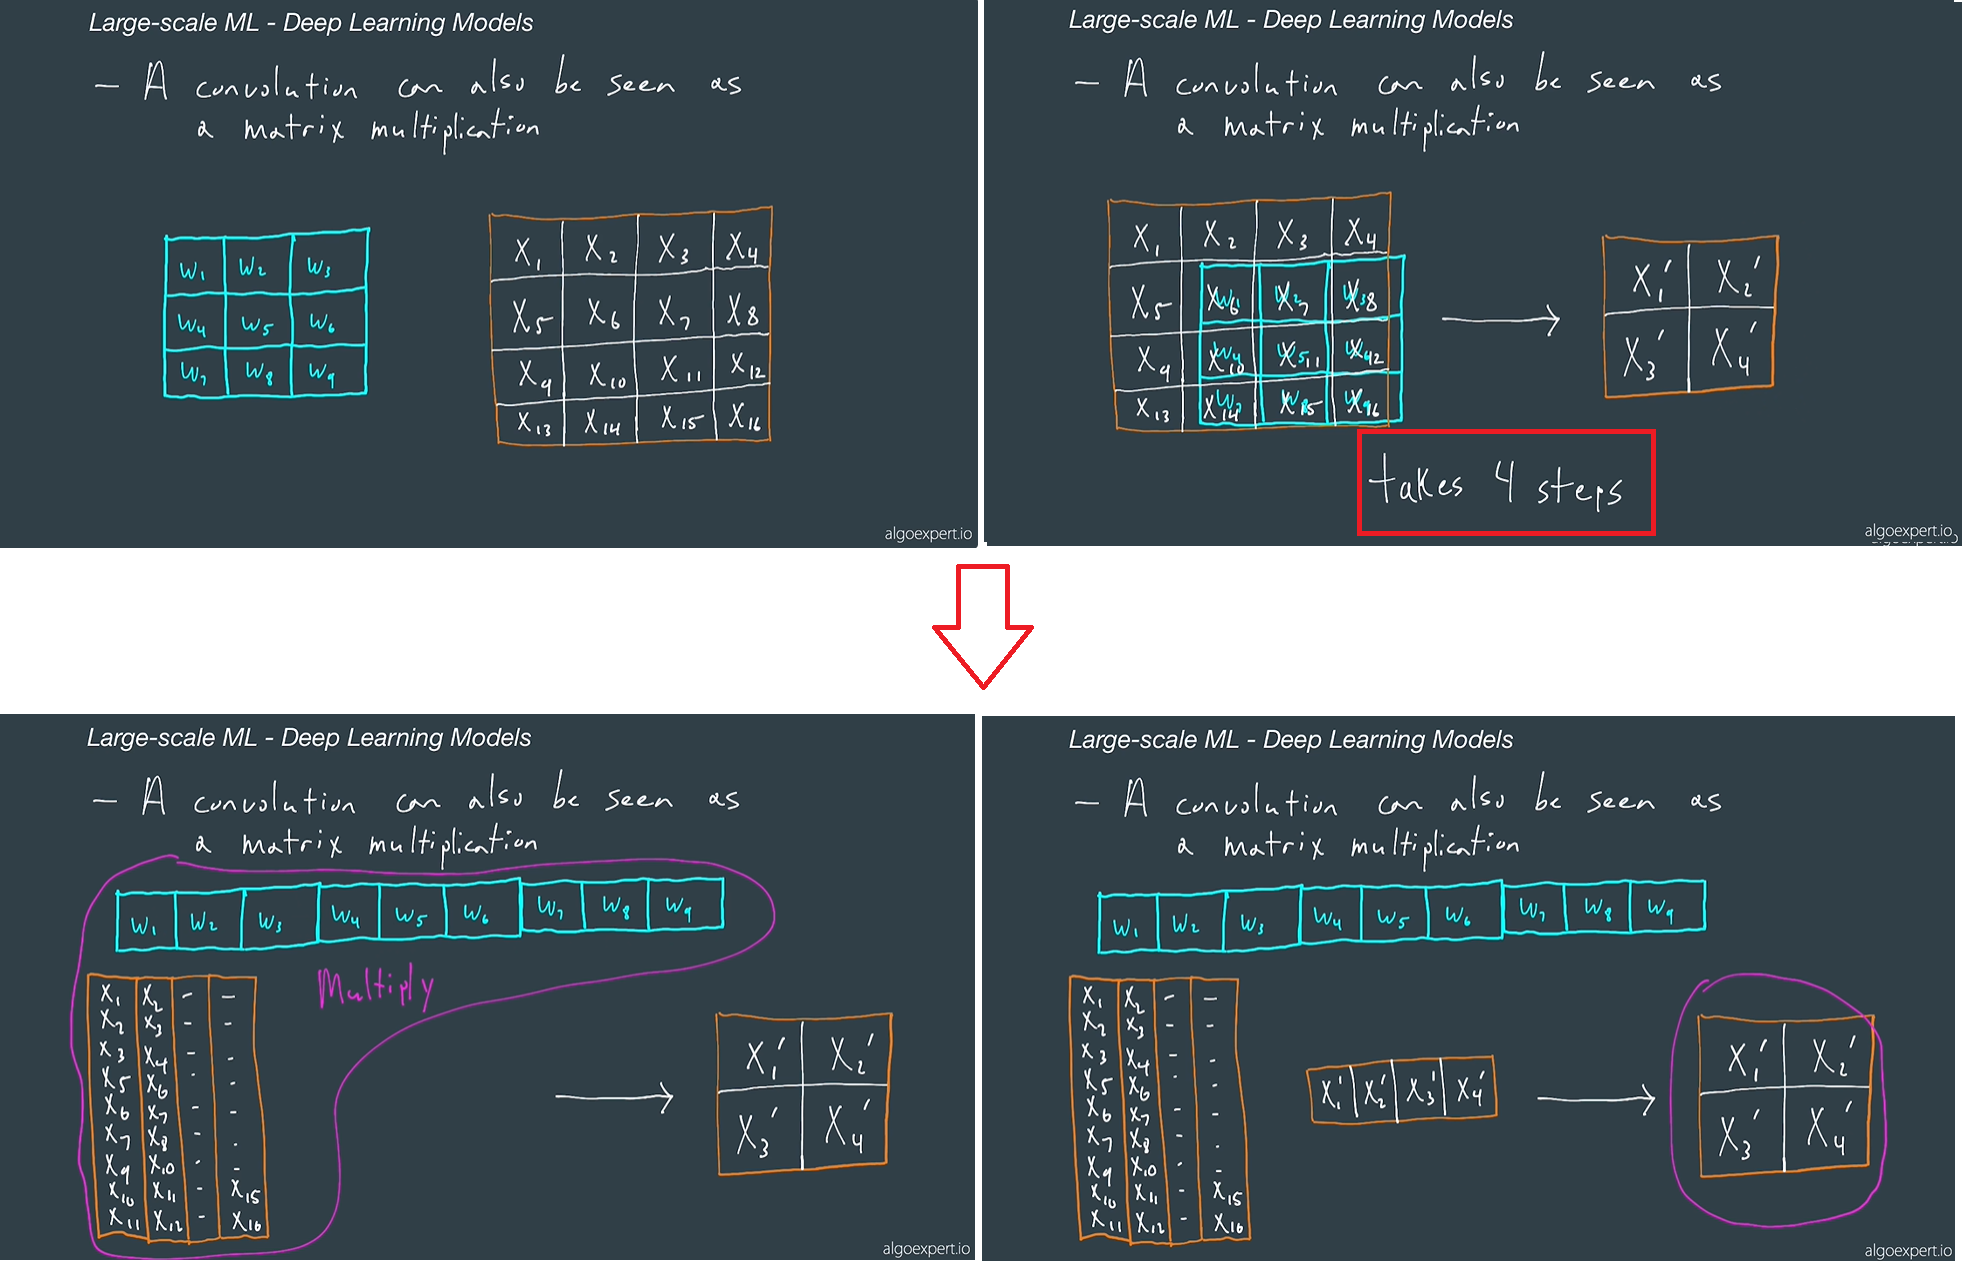 Large-scale ML - Deep Learning Models
- A convolution can also be seen as
a matrix multiplication
W1 W2 W3
W4 W5 W6
W7 W8 W9
X1 X2 X3 X4
X5 X6 X7 X8
X9 X10 X11 X12
X13 X14 X15 X16
algoexpert.io
Large-scale ML - Deep Learning Models
- A convolution can also be seen as
a matrix multiplication
X1 X2 X3 X4
X5 X6 W1 X7 W2 X8 W3
X9 X10 W4 X11 W5 X12 W6
X13 X14 W7 X15 W8 X16 W9
→
X1' X2'
X3' X4'
takes 4 steps
algoexpert.io
algoexpert.io
Large-scale ML - Deep Learning Models
- A convolution can also be seen as
a matrix multiplication
W1 W2 W3 W4 W5 W6 W7 W8 W9
Multiply
X1 X2 - -
X2 X3 - -
X3 X4 - -
X5 X6 - -
X6 X7 - -
X7 X8 - -
X9 X10 - -
X10 X11 - X15
X11 X12 - X16
→
X1' X2'
X3' X4'
algoexpert.io
Large-scale ML - Deep Learning Models
- A convolution can also be seen as
a matrix multiplication
W1 W2 W3 W4 W5 W6 W7 W8 W9
X1 X2 - -
X2 X3 - -
X3 X4 - -
X5 X6 - -
X6 X7 - -
X7 X8 - -
X9 X10 - -
X10 X11 - X15
X11 X12 - X16
X1' X2' X3' X4'
→
X1' X2'
X3' X4'
algoexpert.io